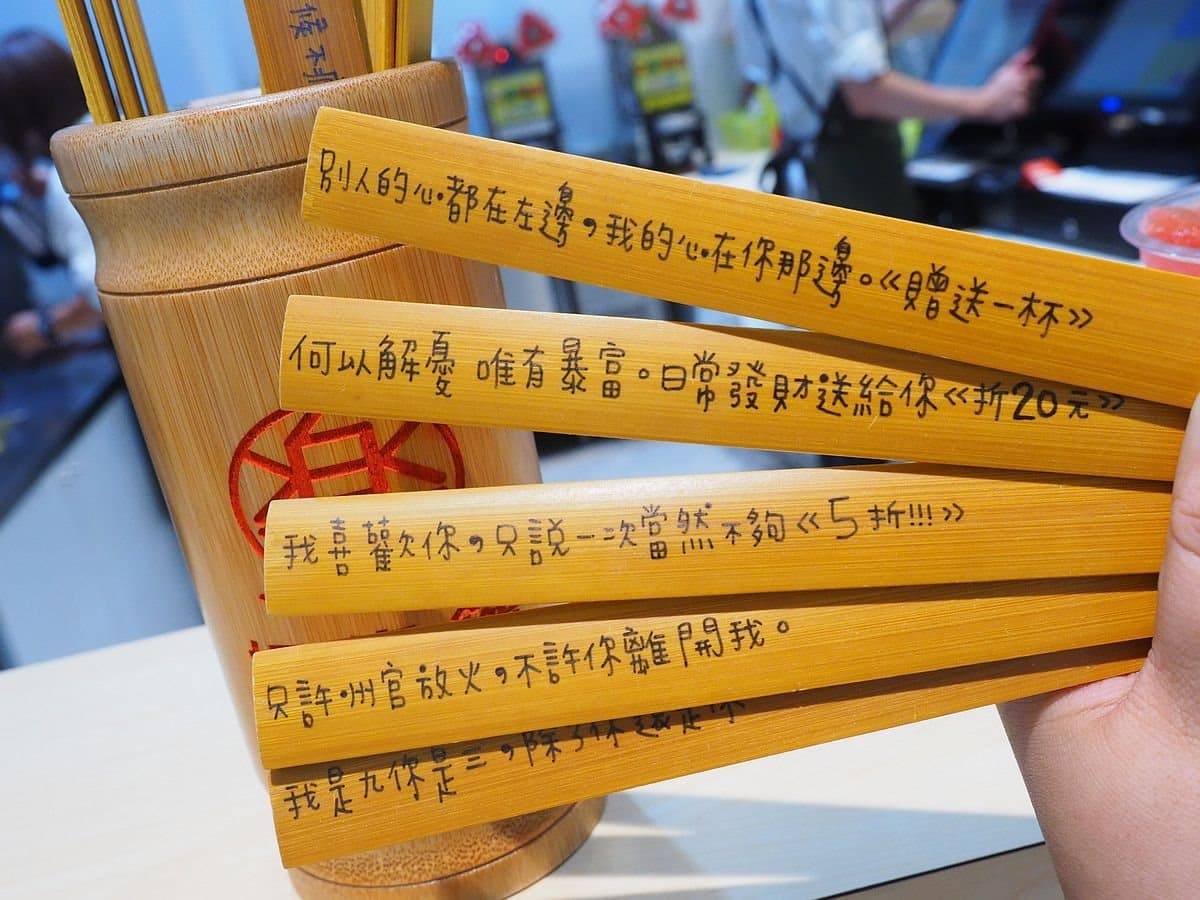 別人的心都在左邊，我的心在你那邊。《贈送一杯》
何以解憂 唯有暴富。日常發財送給你《折20元》
我喜歡你，只說一次當然不夠《5折!!!》
只許州官放火，不許你離開我。
我是九你是三，除了你還是你